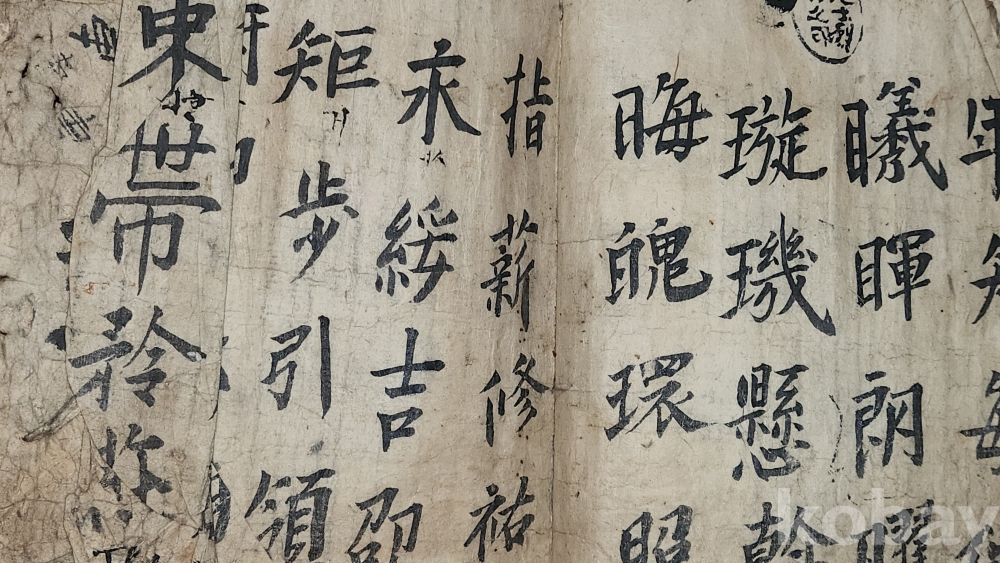 年矢每催
曦暉朗曜
璇璣懸斡
晦魄環照
指薪修祐
永綏吉邵
矩步引領
束帶矜莊
kobay